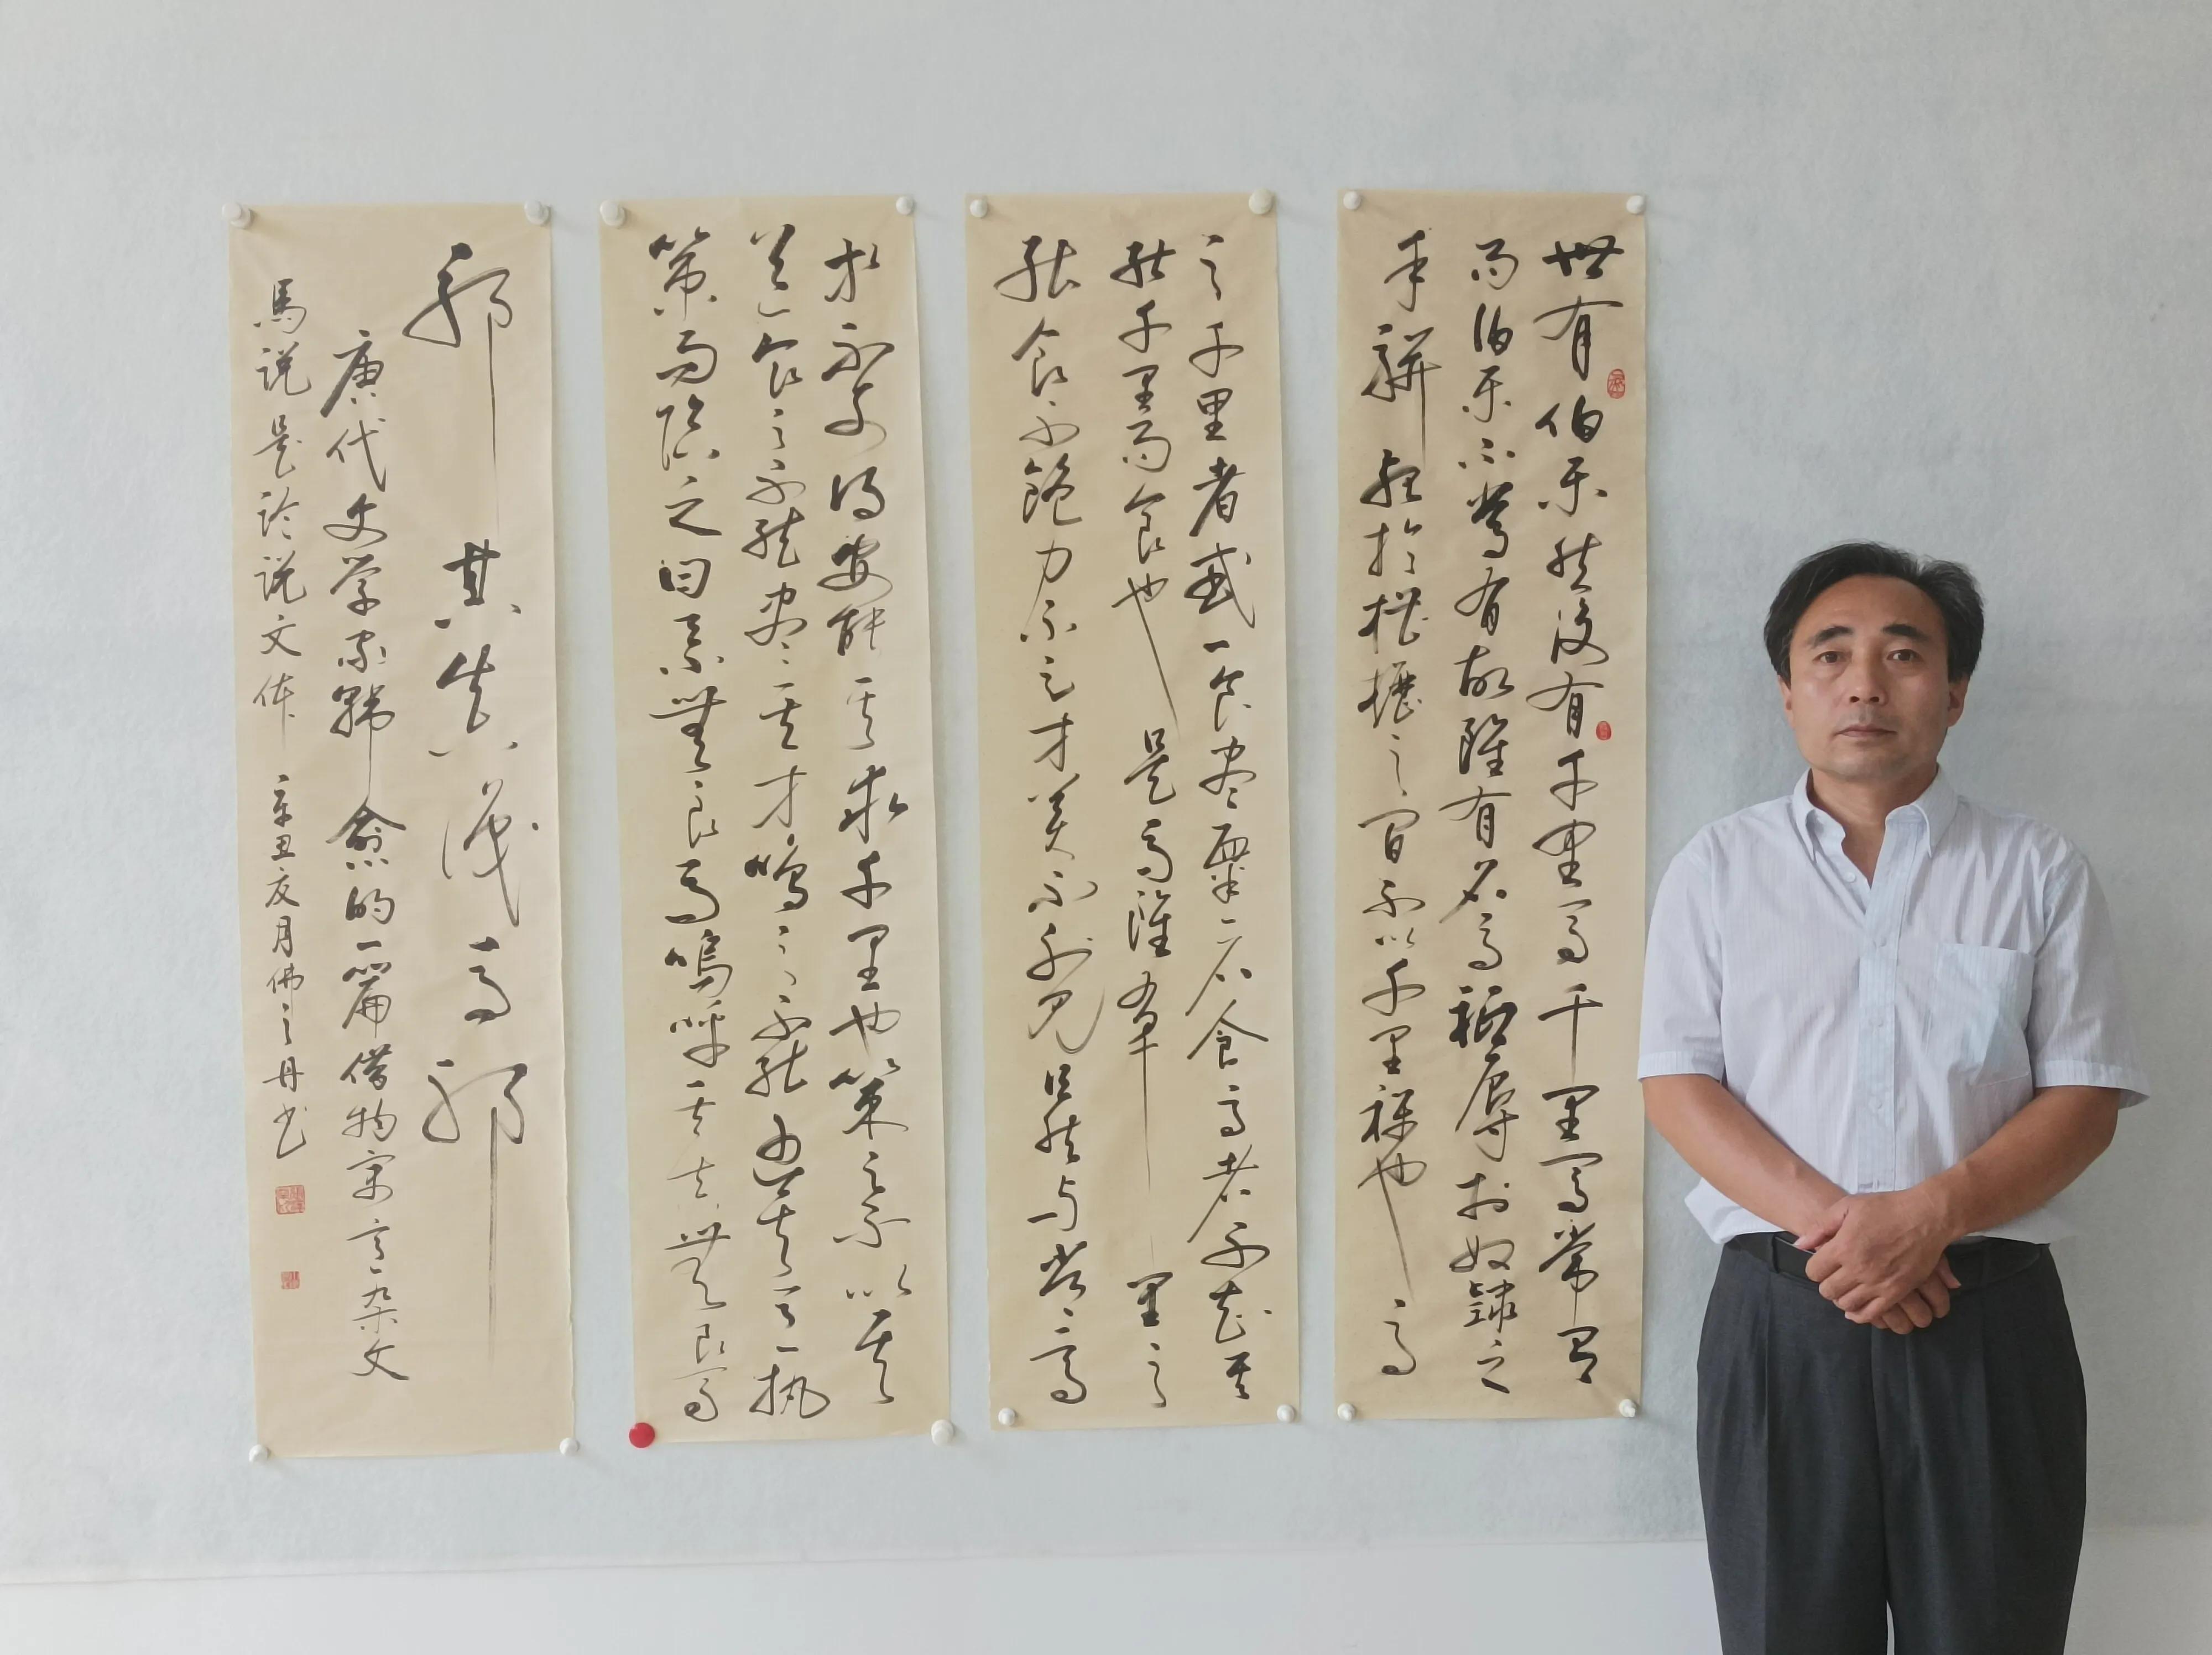 世有伯乐然後有千里馬千里馬常有
而伯乐不常有故雖有名馬祗辱於奴隸之
手駢死於槽櫪之间不以千里称也馬
之千里者或一食尽粟一石食馬者不知其
能千里而食也是馬雖有千里之
能食不飽力不足才美不外见且欲与常馬
等不可得安能其求千里也策之不以其
道食之不能尽其才鳴之不能通其意执
策而临之曰無良馬鳴呼其真無良馬
邪其真识馬邪
唐代文学家韩愈的一篇借物寓言杂文
馬说是论说文体 辛丑夏月佛之丹书